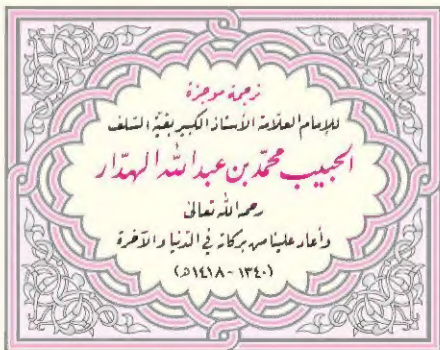 ترجمة موجزة
للإمام العلامة الأستاذ الكبير بقية السلف
الحبيب محمد بن عبد الله الهدّار
رحمه الله تعالى
وأعاد علينا من بركاته في الدنيا والآخرة
(١٣٤٠ - ١٤١٨ه)